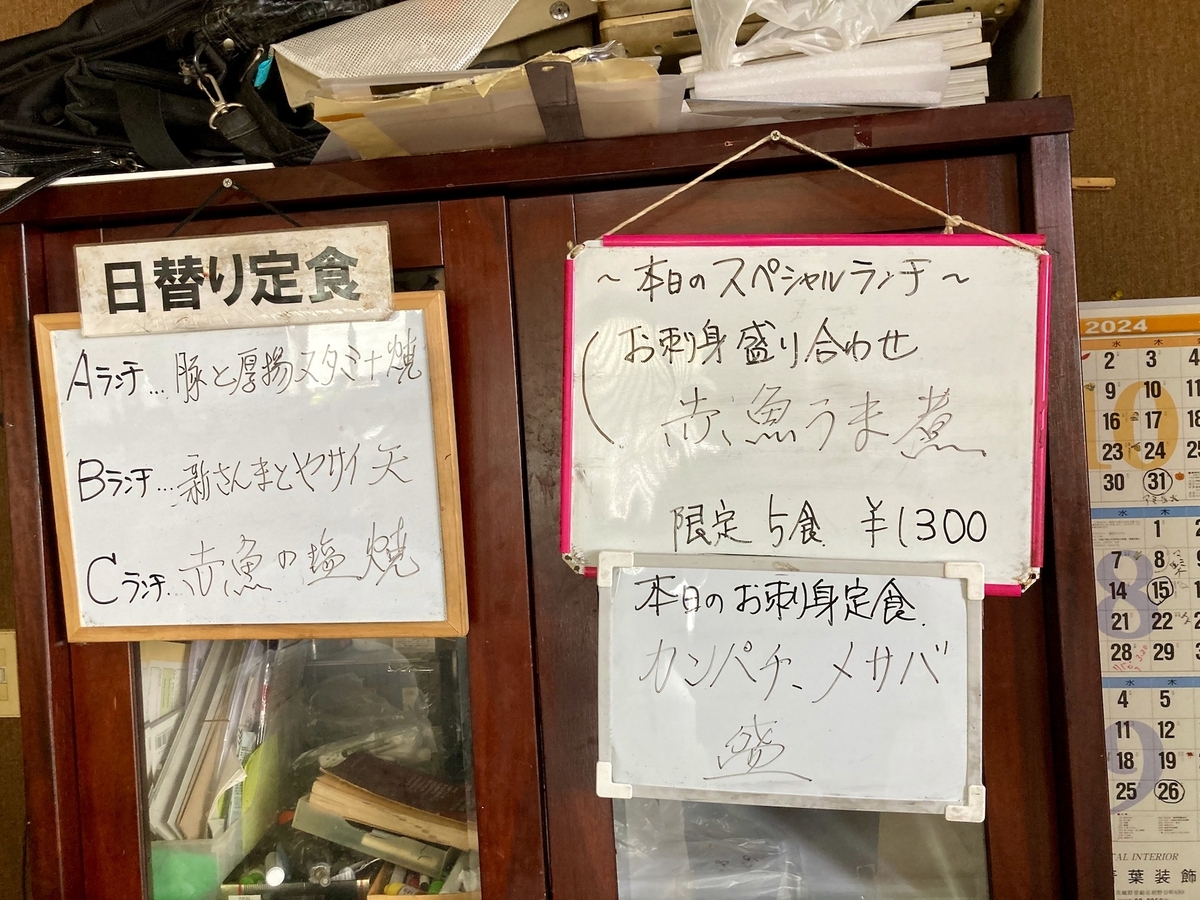 日替り定食
Aランチ…豚と厚揚スタミナ焼
Bランチ…新さんまとヤサイ天
Cランチ…赤魚の塩焼
〜本日のスペシャルランチ〜
お刺身盛り合わせ
赤魚うま煮
限定5食 ¥1300
本日のお刺身定食
カンパチ、メサバ
盛
2024
水 木
10
2 3 4
9 10 11
16 17 18
23 24 25
30 31
水 木
8
1 2
7 8 9
14 15 16
21 22 23
28 29 30
水 木
9
4 5
11 12
18 19
25 26
TAL INTERIOR
青葉装飾